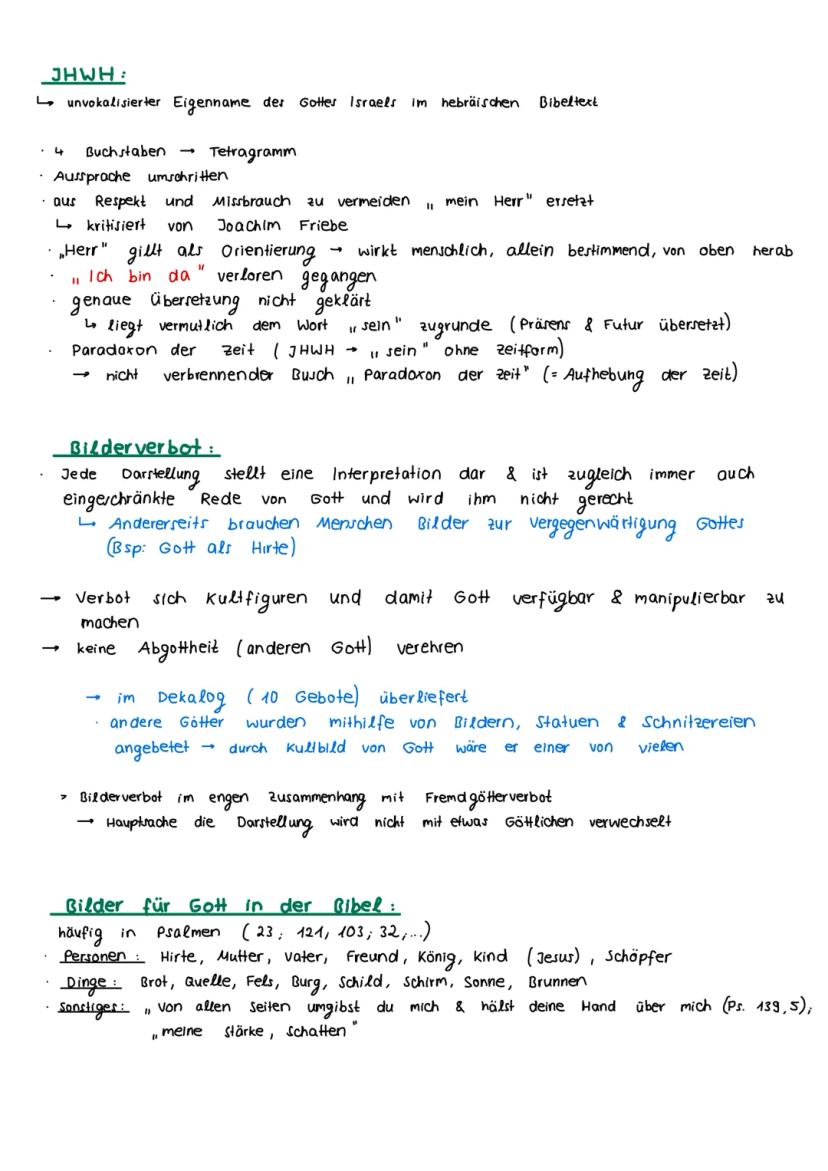 JHWH:
↳ unvokalisierter Eigenname des Gottes Israels im hebräischen Bibeltext
· 4 Buchstaben → Tetragramm
· Aussprache umschritten
· aus Respekt und Missbrauch zu vermeiden „mein Herr" ersetzt
↳ kritisiert von Joachim Friebe
· „Herr" gillt als Orientierung → wirkt menschlich, allein bestimmend, von oben herab
· „Ich bin da" verloren gegangen
· genaue Übersetzung nicht geklärt
↳ liegt vermutlich dem Wort „sein" zugrunde (Präsens & Futur übersetzt)
· Paradoxon der Zeit (JHWH → „sein" ohne Zeitform)
→ nicht verbrennender Busch „Paradoxon der Zeit" (= Aufhebung der Zeit)
Bilderverbot:
· Jede Darstellung stellt eine Interpretation dar & ist zugleich immer auch
eingeschränkte Rede von Gott und wird ihm nicht gerecht
↳ Andererseits brauchen Menschen Bilder zur Vergegenwärtigung Gottes
(Bsp: Gott als Hirte)
→ Verbot sich Kultfiguren und damit Gott verfügbar & manipulierbar zu
machen
→ keine Abgottheit (anderen Gott) verehren
→ im Dekalog (10 Gebote) überliefert
· andere Götter wurden mithilfe von Bildern, Statuen & Schnitzereien
angebetet → durch Kultbild von Gott wäre er einer von vielen
> Bilderverbot im engen Zusammenhang mit Fremdgötterverbot
→ Hauptsache die Darstellung wird nicht mit etwas Göttlichen verwechselt
Bilder für Gott in der Bibel:
häufig in Psalmen (23; 121, 103; 32,...)
· Personen: Hirte, Mutter, Vater, Freund, König, Kind (Jesus), Schöpfer
· Dinge: Brot, Quelle, Fels, Burg, Schild, Schirm, Sonne, Brunnen
· Sonstiges: „Von allen Seiten umgibst du mich & hälst deine Hand über mich (Ps. 139,5);
„meine Stärke, Schatten"